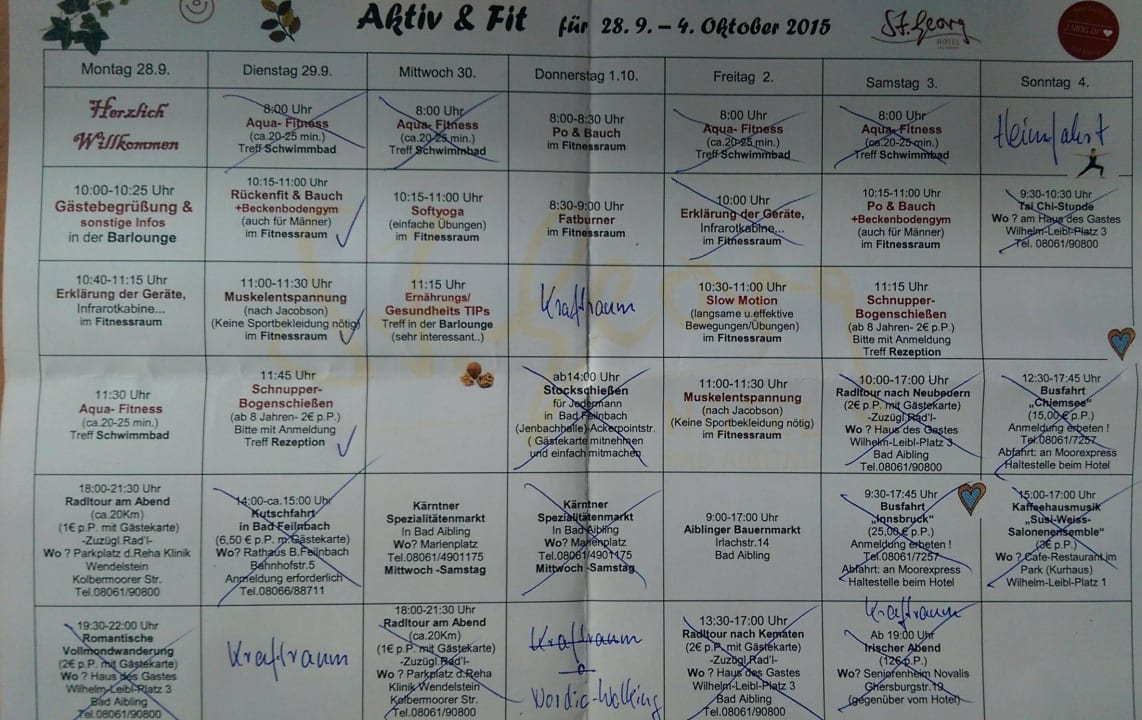 Aktiv & Fit für 28. 9. – 4. Oktober 2015
St. Georg
HOTEL
Montag 28.9.
Dienstag 29.9.
Mittwoch 30.
Donnerstag 1.10.
Freitag 2.
Samstag 3.
Sonntag 4.
Herzlich
Willkommen
8:00 Uhr
Aqua- Fitness
(ca.20-25 min.)
Treff Schwimmbad
8:00 Uhr
Aqua- Fitness
(ca.20-25 min.)
Treff Schwimmbad
8:00-8:30 Uhr
Po & Bauch
im Fitnessraum
8:00 Uhr
Aqua- Fitness
(ca.20-25 min.)
Treff Schwimmbad
8:00 Uhr
Aqua- Fitness
(ca.20-25 min.)
Treff Schwimmbad
Heimfahrt
10:00-10:25 Uhr
Gästebegrüßung &
sonstige Infos
in der Barlounge
10:15-11:00 Uhr
Rückenfit & Bauch
+Beckenbodengym
(auch für Männer)
im Fitnessraum
10:15-11:00 Uhr
Softyoga
(einfache Übungen)
im Fitnessraum
8:30-9:00 Uhr
Fatburner
im Fitnessraum
10:00 Uhr
Erklärung der Geräte,
Infrarotkabine...
im Fitnessraum
10:15-11:00 Uhr
Po & Bauch
+Beckenbodengym
(auch für Männer)
im Fitnessraum
9:30-10:30 Uhr
Tai Chi-Stunde
Wo ? am Haus des Gastes
Wilhelm-Leibl-Platz 3
Tel. 08061/90800
10:40-11:15 Uhr
Erklärung der Geräte,
Infrarotkabine...
im Fitnessraum
11:00-11:30 Uhr
Muskelentspannung
(nach Jacobson)
(Keine Sportbekleidung nötig)
im Fitnessraum
11:15 Uhr
Ernährungs/
Gesundheits TIPs
Treff in der Barlounge
(sehr interessant..)
Kraftraum
10:30-11:00 Uhr
Slow Motion
(langsame u.effektive
Bewegungen/Übungen)
im Fitnessraum
11:15 Uhr
Schnupper-
Bogenschießen
(ab 8 Jahren- 2€ p.P.)
Bitte mit Anmeldung
Treff Rezeption
11:30 Uhr
Aqua- Fitness
(ca.20-25 min.)
Treff Schwimmbad
11:45 Uhr
Schnupper-
Bogenschießen
(ab 8 Jahren- 2€ p.P.)
Bitte mit Anmeldung
Treff Rezeption
ab14:00 Uhr
Stockschießen
für Jedermann
in Bad Feilnbach
(Jenbachhalle)-Ackerpointstr.
( Gästekarte mitnehmen
und einfach mitmachen
11:00-11:30 Uhr
Muskelentspannung
(nach Jacobson)
(Keine Sportbekleidung nötig)
im Fitnessraum
10:00-17:00 Uhr
Radltour nach Neubeuern
(2€ p.P. mit Gästekarte)
-Zuzügl.Rad'l-
Wo ? Haus des Gastes
Wilhelm-Leibl-Platz 3
Bad Aibling
Tel.08061/90800
12:30-17:45 Uhr
Busfahrt
„Chiemsee“
(15,00€ p.P.)
Anmeldung erbeten !
Tel.08061/7257
Abfahrt: an Moorexpress
Haltestelle beim Hotel
18:00-21:30 Uhr
Radltour am Abend
(ca.20Km)
(1€ p.P. mit Gästekarte)
-Zuzügl.Rad'l-
Wo ? Parkplatz d.Reha Klinik
Wendelstein
Kolbermoorer Str.
Tel.08061/90800
14:00-ca.15:00 Uhr
Kutschfahrt
in Bad Feilnbach
(6,50 € p.P. m.Gästekarte)
Wo? Rathaus B.Feilnbach
Bahnhofstr.5
Anmeldung erforderlich
Tel.08066/88711
Kärntner
Spezialitätenmarkt
In Bad Aibling
Wo? Marienplatz
Tel.08061/4901175
Mittwoch -Samstag
Kärntner
Spezialitätenmarkt
In Bad Aibling
Wo? Marienplatz
Tel.08061/4901175
Mittwoch -Samstag
9:00-17:00 Uhr
Aiblinger Bauernmarkt
Irlachstr.14
Bad Aibling
9:30-17:45 Uhr
Busfahrt
„Innsbruck“
(25,00 € p.P.)
Anmeldung erbeten !
Tel.08061/7257
Abfahrt: an Moorexpress
Haltestelle beim Hotel
15:00-17:00 Uhr
Kaffeehausmusik
"Susi-Weiss-
Salonenensemble"
(3€ p.P.)
Wo ? Cafe-Restaurant im
Park (Kurhaus)
Wilhelm-Leibl-Platz 1
19:30-22:00 Uhr
Romantische
Vollmondwanderung
(2€ p.P. mit Gästekarte)
Wo ? Haus des Gastes
Wilhelm-Leibl-Platz 3
Bad Aibling
Tel.08061/90800
Kraftraum
18:00-21:30 Uhr
Radltour am Abend
(ca.20Km)
(1€ p.P. mit Gästekarte)
-Zuzügl.Rad'l-
Wo ? Parkplatz d.Reha
Klinik Wendelstein
Kolbermoorer Str.
Tel.08061/90800
Kraftraum
Nordic-Walking
13:30-17:00 Uhr
Radltour nach Kematen
(2€ p.P. mit Gästekarte)
-Zuzügl.Rad'l-
Wo ? Haus des Gastes
Wilhelm-Leibl-Platz 3
Bad Aibling
Tel.08061/90800
Kraftraum
Ab 19:00 Uhr
Irischer Abend
(12€ p.P.)
Wo? Seniorenheim Novalis
Ghersburgstr.19
(gegenüber vom Hotel)